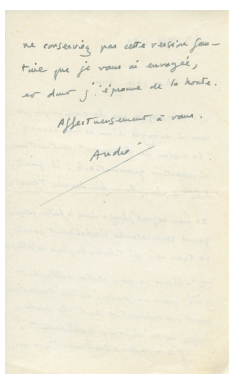 ne conserviez pas cette version fau-
tive que je vous ai envoyée,
et dont j'éprouve de la honte.
Affectueusement à vous.
André